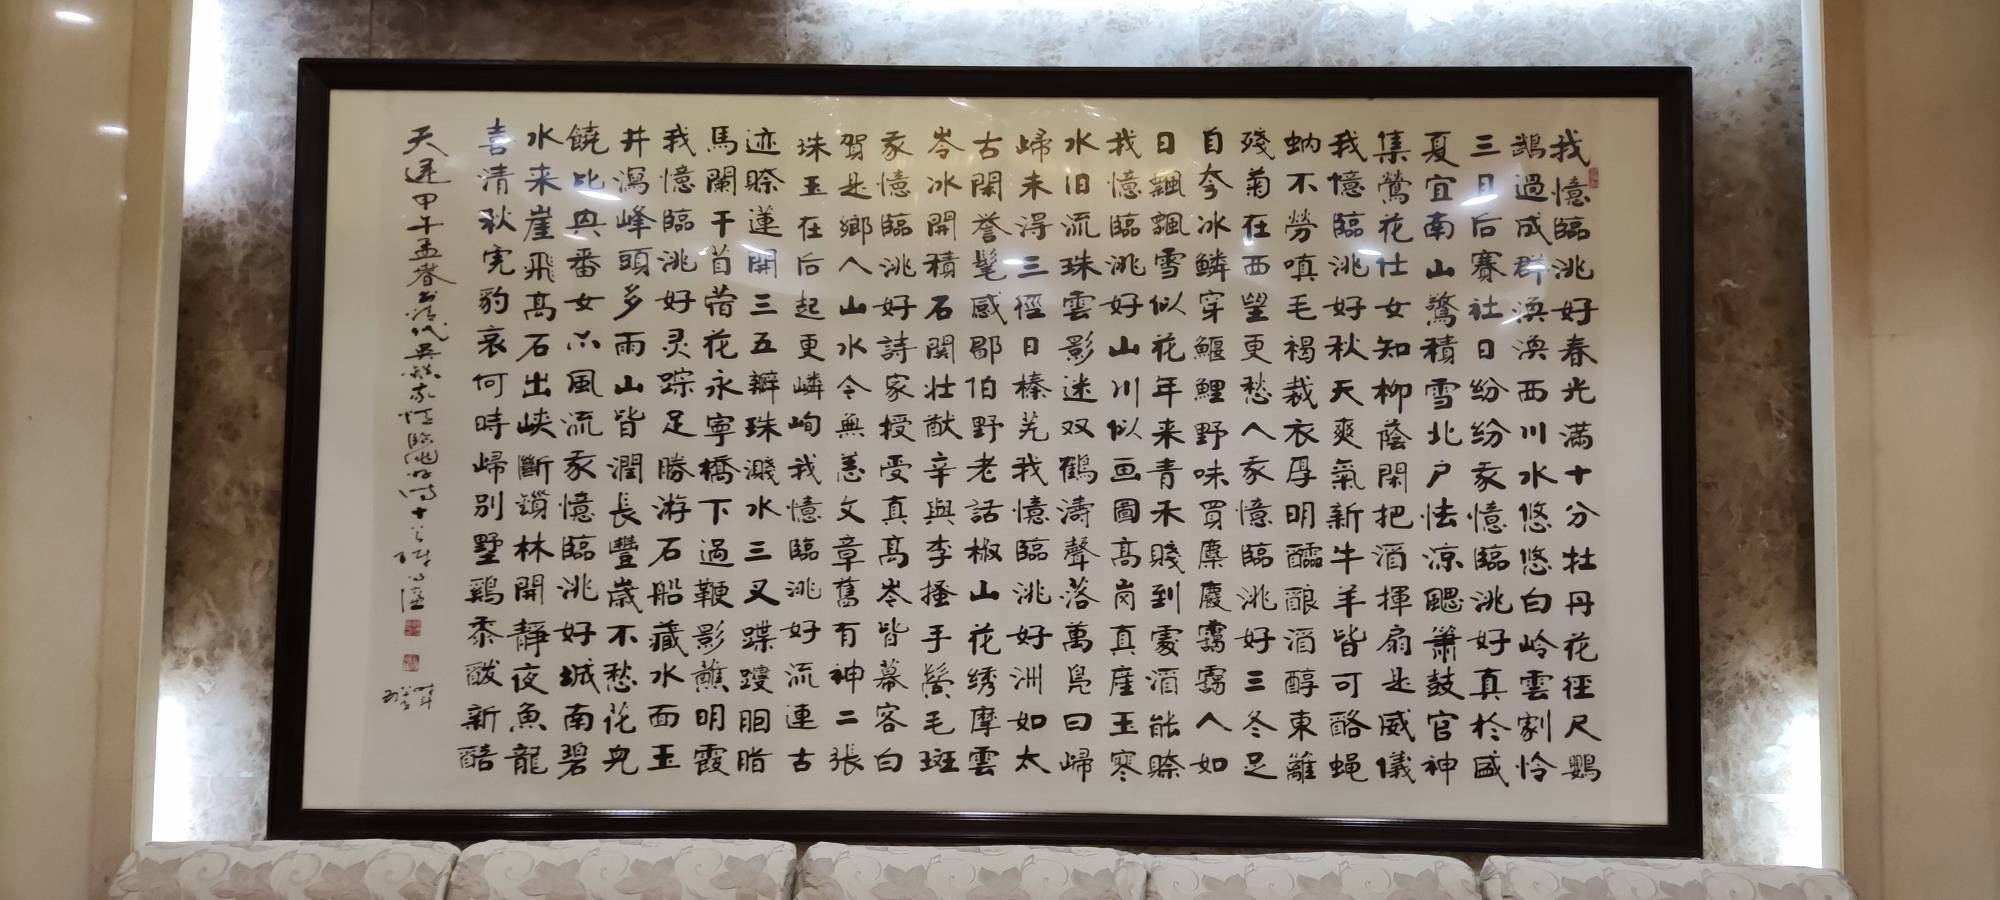 我憶臨洮好春光滿十分牡丹花徑尺鸚
鵡過成群渙渙西川水悠悠白岭雲剧怜
三月后賽社日纷纷我憶臨洮好真於盛
夏宜南山驚積雪北户怯凉颸簫鼓官神
集鶯花仕女知柳蔭閑把酒揮扇是威儀
我憶臨洮好秋天爽氣新牛羊皆可酪蝇
蚋不勞嗔毛褐裁衣厚明醹酿酒醇東離
殘菊在西望更愁人我憶臨洮好三冬足
自夸冰鳞穿鰋鯉野味買麋麌靄靄人如
日飄飄雪似花年来青禾賤到處酒能賒
我憶臨洮好山川似画圖高岗真産玉寒
水旧流珠雲影迷双鶴濤聲落萬凫曰歸
歸未得三徑日榛芜我憶臨洮好洲如太
古閑誉髦感郡伯野老話椒山花绣摩雲
岺冰開積石関壮猷辛與李搔手鬓毛斑
我憶臨洮好詩家授受真高岑皆幕客白
賀是鄉人山水今無恙文章舊有神二張
珠玉在后起更嶙峋我憶臨洮好流連古
迹賒蓮開三五瓣珠濺水三叉蹀躞胭脂
馬闌干苜蓿花永寧橋下過鞭影蘸明霞
我憶臨洮好灵踪足勝游石船藏水面玉
井瀉峰頭多雨山皆潤長豐歲不愁花兒
饒比興番女亦風流我憶臨洮好城南碧
水来崖飛高石出峡斷鎖林開靜夜魚龍
喜清秋虎豹哀何時歸别墅鷄黍醱新醅
天遅甲午孟春書清代吴鎮我憶臨洮好詩十首